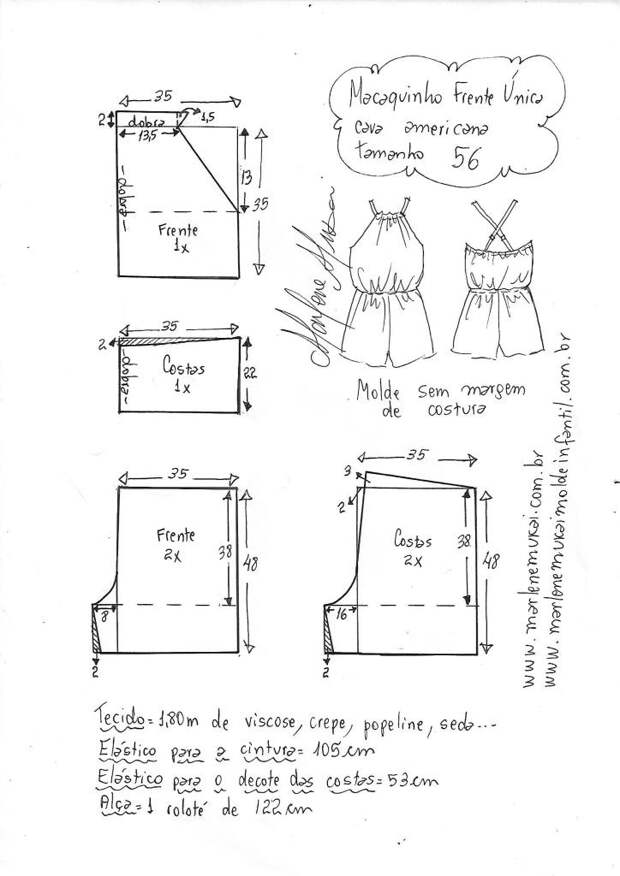 Macaquinho Frente Única
cava americana
tamanho 56
35
2
dobra
1,5
13,5
13
35
dobra
Frente
1x
35
2
dobra
Costas
1x
22
Marlene Mukai
Molde sem margem
de costura
35
Frente
2x
38
48
8
2
35
3
2
Costas
2x
38
48
16
2
www.marlenemukai.com.br
www.marlenemukaimoldeinfantil.com.br
Tecido=1,80m de viscose, crepe, popeline, seda...
Elástico para a cintura=105cm
Elástico para o decote das costas=53cm
Alça=1 roloté de 122cm